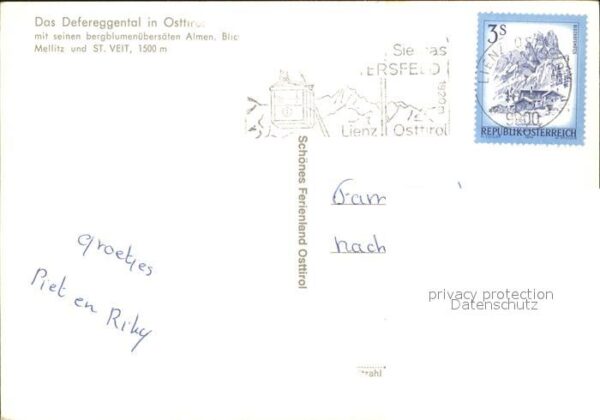 Das Defereggental in Osttirol
mit seinen bergblumenübersäten Almen. Blic
Mellitz und ST. VEIT, 1500 m
Sie das
ERSFELD
1929m
Lienz Osttirol
LIENZ
9900
3s
REPUBLIK ÖSTERREICH
Schönes Ferienland Osttirol
Fam
nach
groetjes
Piet en Riky
privacy protection
Datenschutz
trahl